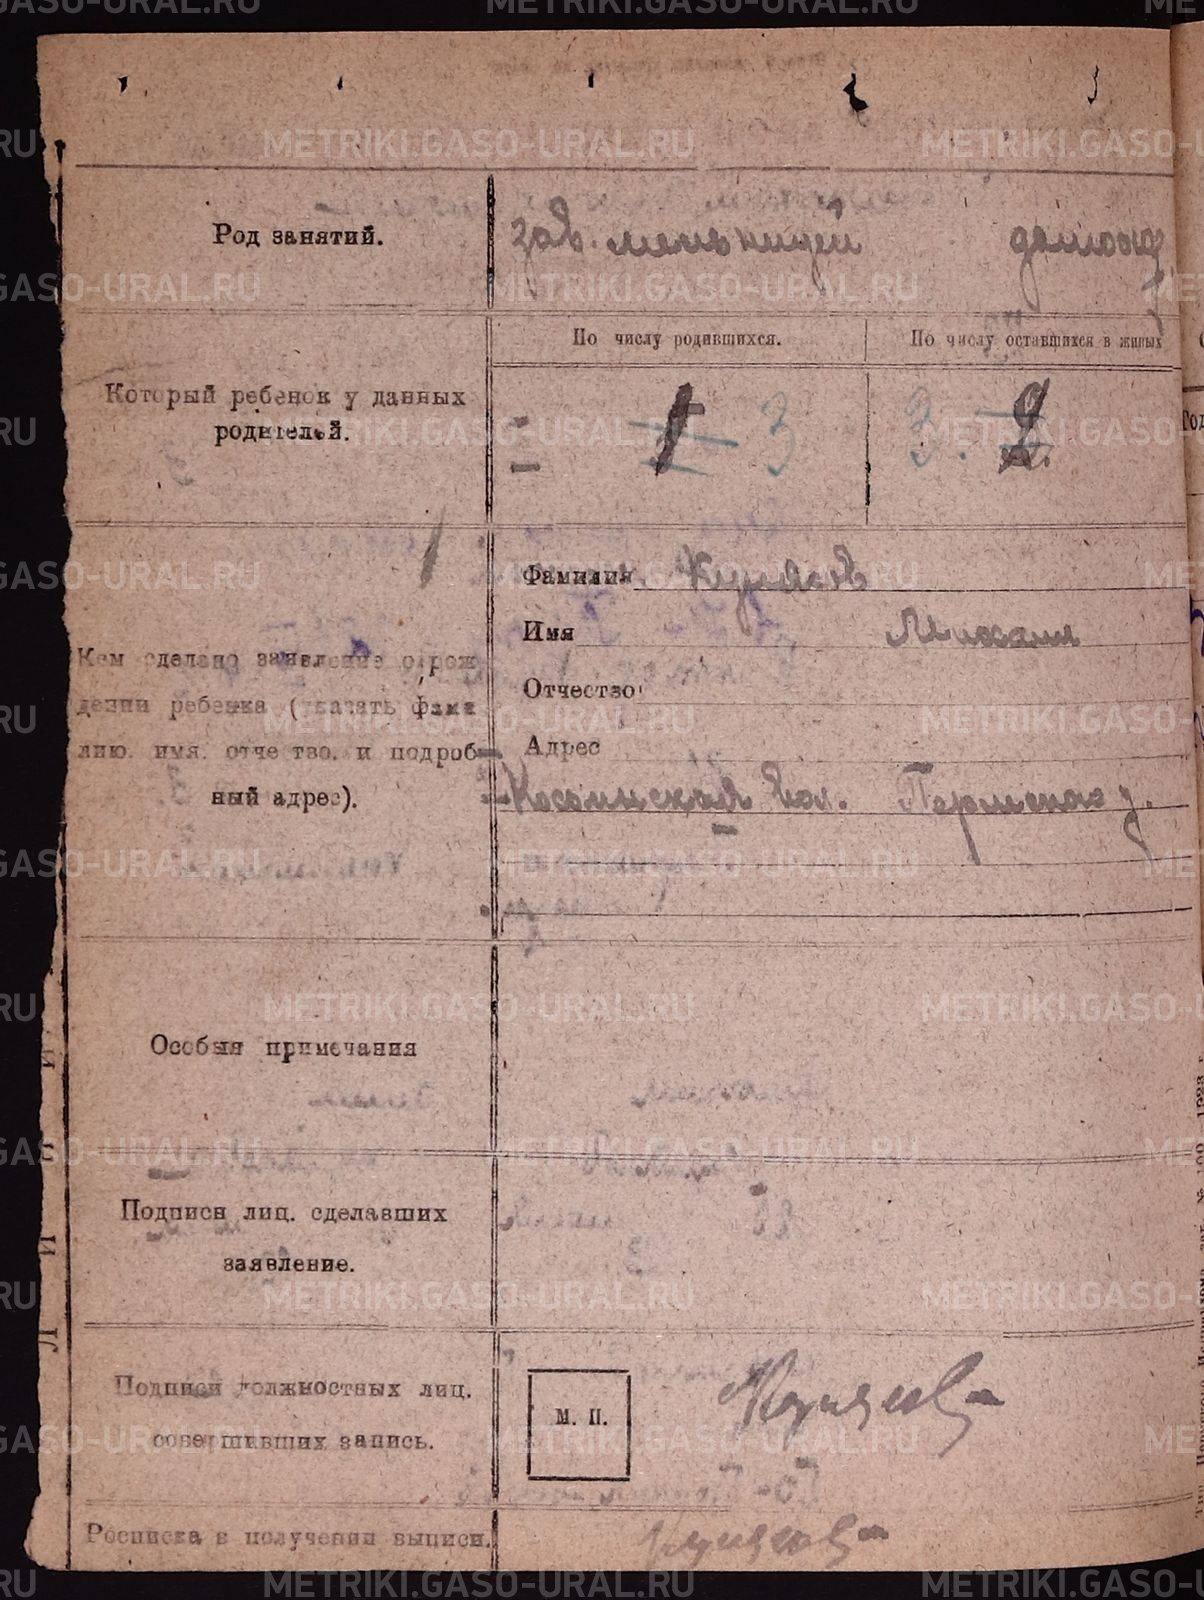 METRIKI.GASO-URAL.RU
Род занятий.
зав. мельницей
домохоз
По числу родившихся.
По числу оставшихся в живых
Который ребенок у данных
родителей.
1 3
3. 2.
Фамилия Куляков
Имя Михаил
Отчество
Адрес
Косинской вол. Пермского у.
Кем сделано заявление о рож
дении ребенка (указать фами
лию, имя, отчество, и подроб-
ный адрес).
Особыя примечания
Подписи лиц, сделавших
заявление.
Подписи должностных лиц,
совершивших запись.
М. П.
Росписка в получении выписи.